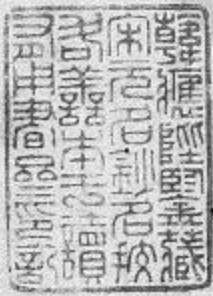 韓應陛鑒藏
宋元名鈔名校
各善本于讀
有用書齋印記